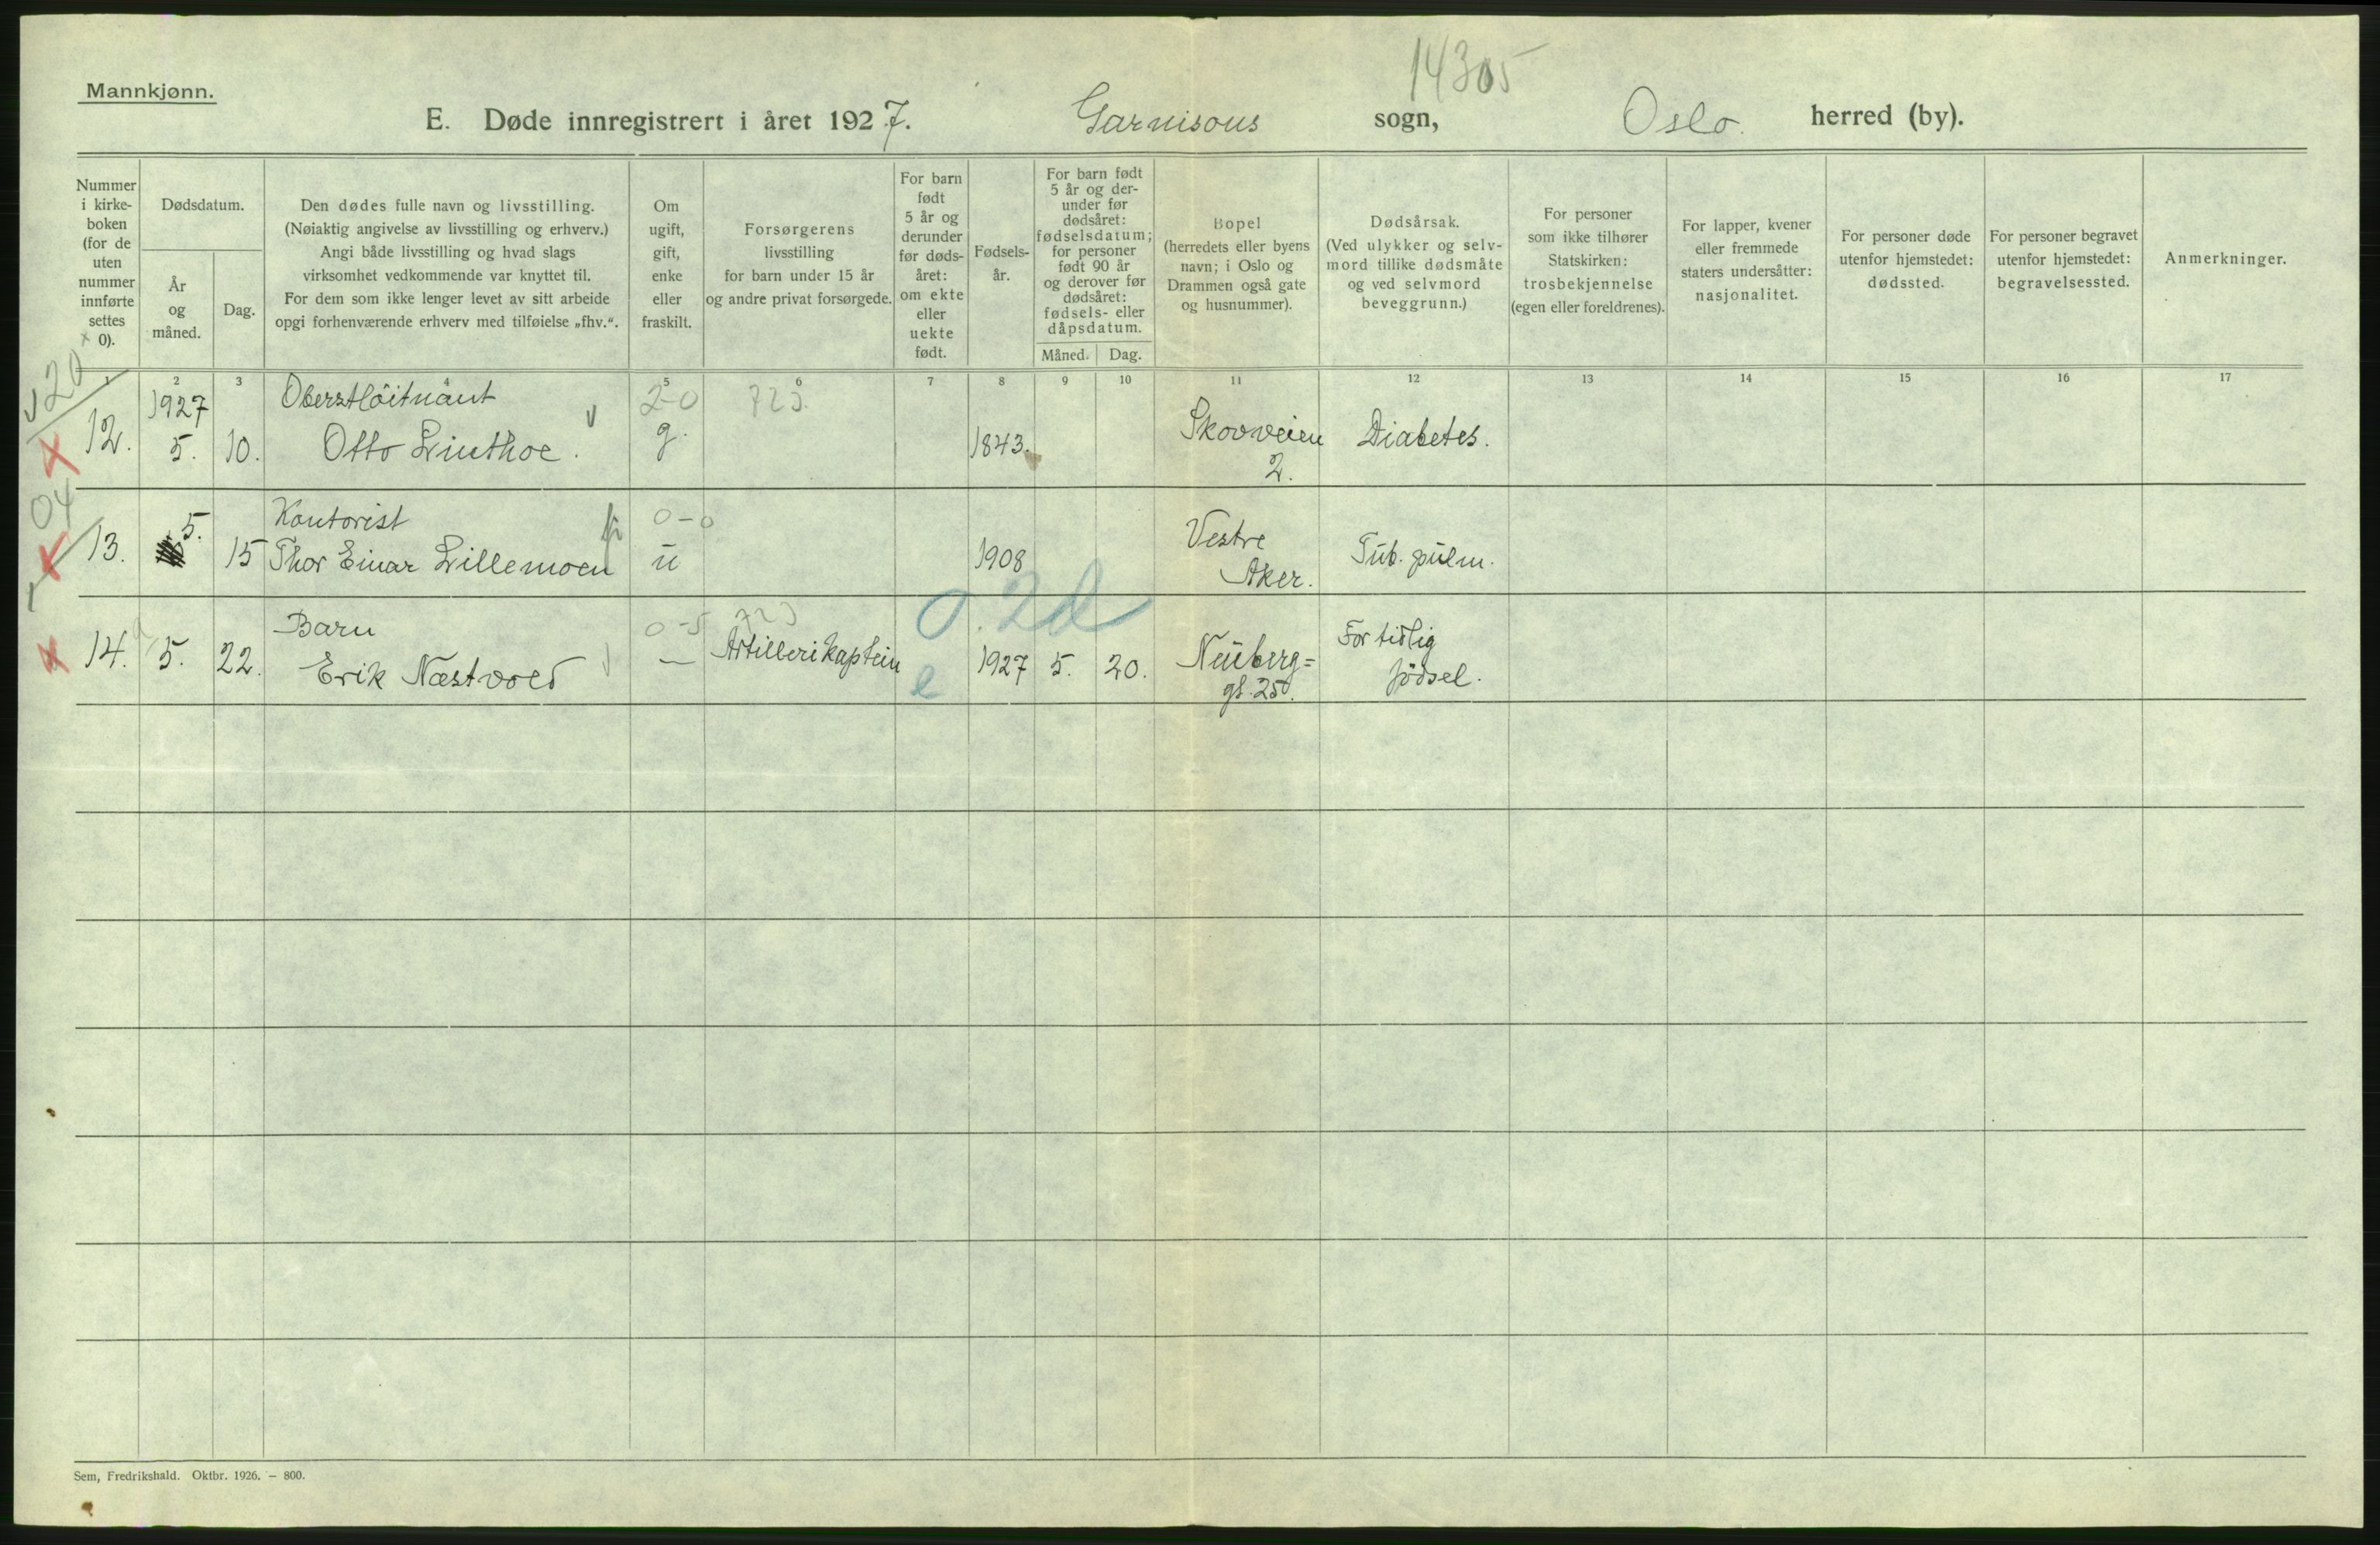 14305
Mannkjønn.
E. Døde innregistrert i året 1927. Garnisons sogn, Oslo herred (by).
Nummer i kirke- boken (for de uten nummer innførte settes 0).
Dødsdatum.
År og måned.
Dag.
Den dødes fulle navn og livsstilling.
(Nøiaktig angivelse av livsstilling og erhverv.)
Angi både livsstilling og hvad slags
virksomhet vedkommende var knyttet til.
For dem som ikke lenger levet av sitt arbeide
opgi forhenværende erhverv med tilføielse „fhv.“.
Om ugift, gift, enke eller fraskilt.
Forsørgerens
livsstilling
for barn under 15 år
og andre privat forsørgede.
For barn født 5 år og derunder før døds- året: om ekte eller uekte født.
Fødsels- år.
For barn født 5 år og der- under før dødsåret: fødselsdatum; for personer født 90 år og derover før dødsåret: fødsels- eller dåpsdatum.
Måned. Dag.
Bopel
(herredets eller byens
navn; i Oslo og
Drammen også gate
og husnummer).
Dødsårsak.
(Ved ulykker og selv-
mord tillike dødsmåte
og ved selvmord
beveggrunn.)
For personer
som ikke tilhører
Statskirken:
trosbekjennelse
(egen eller foreldrenes).
For lapper, kvener
eller fremmede
staters undersåtter:
nasjonalitet.
For personer døde
utenfor hjemstedet:
dødssted.
For personer begravet
utenfor hjemstedet:
begravelsessted.
Anmerkninger.
1 2 3 4 5 6 7 8 9 10 11 12 13 14 15 16 17
20
1927 Oberstlöitnant 2-0 723
12. 5. 10. Otto Linthoe. g. 1843. Skovveien Diabetes.
2.
04
Kontorist 0-0
13. 5. 15 Thor Einar Lillemoen u 1908 Vestre Tub. pulm.
Aker.
Barn 0-5 723 0.2d
14. 5. 22. Erik Næstvold — Artillerikaptein e 1927 5. 20. Neuberg= For tidlig
gt. 25 födsel.
Sem, Fredrikshald. Oktbr. 1926. – 800.